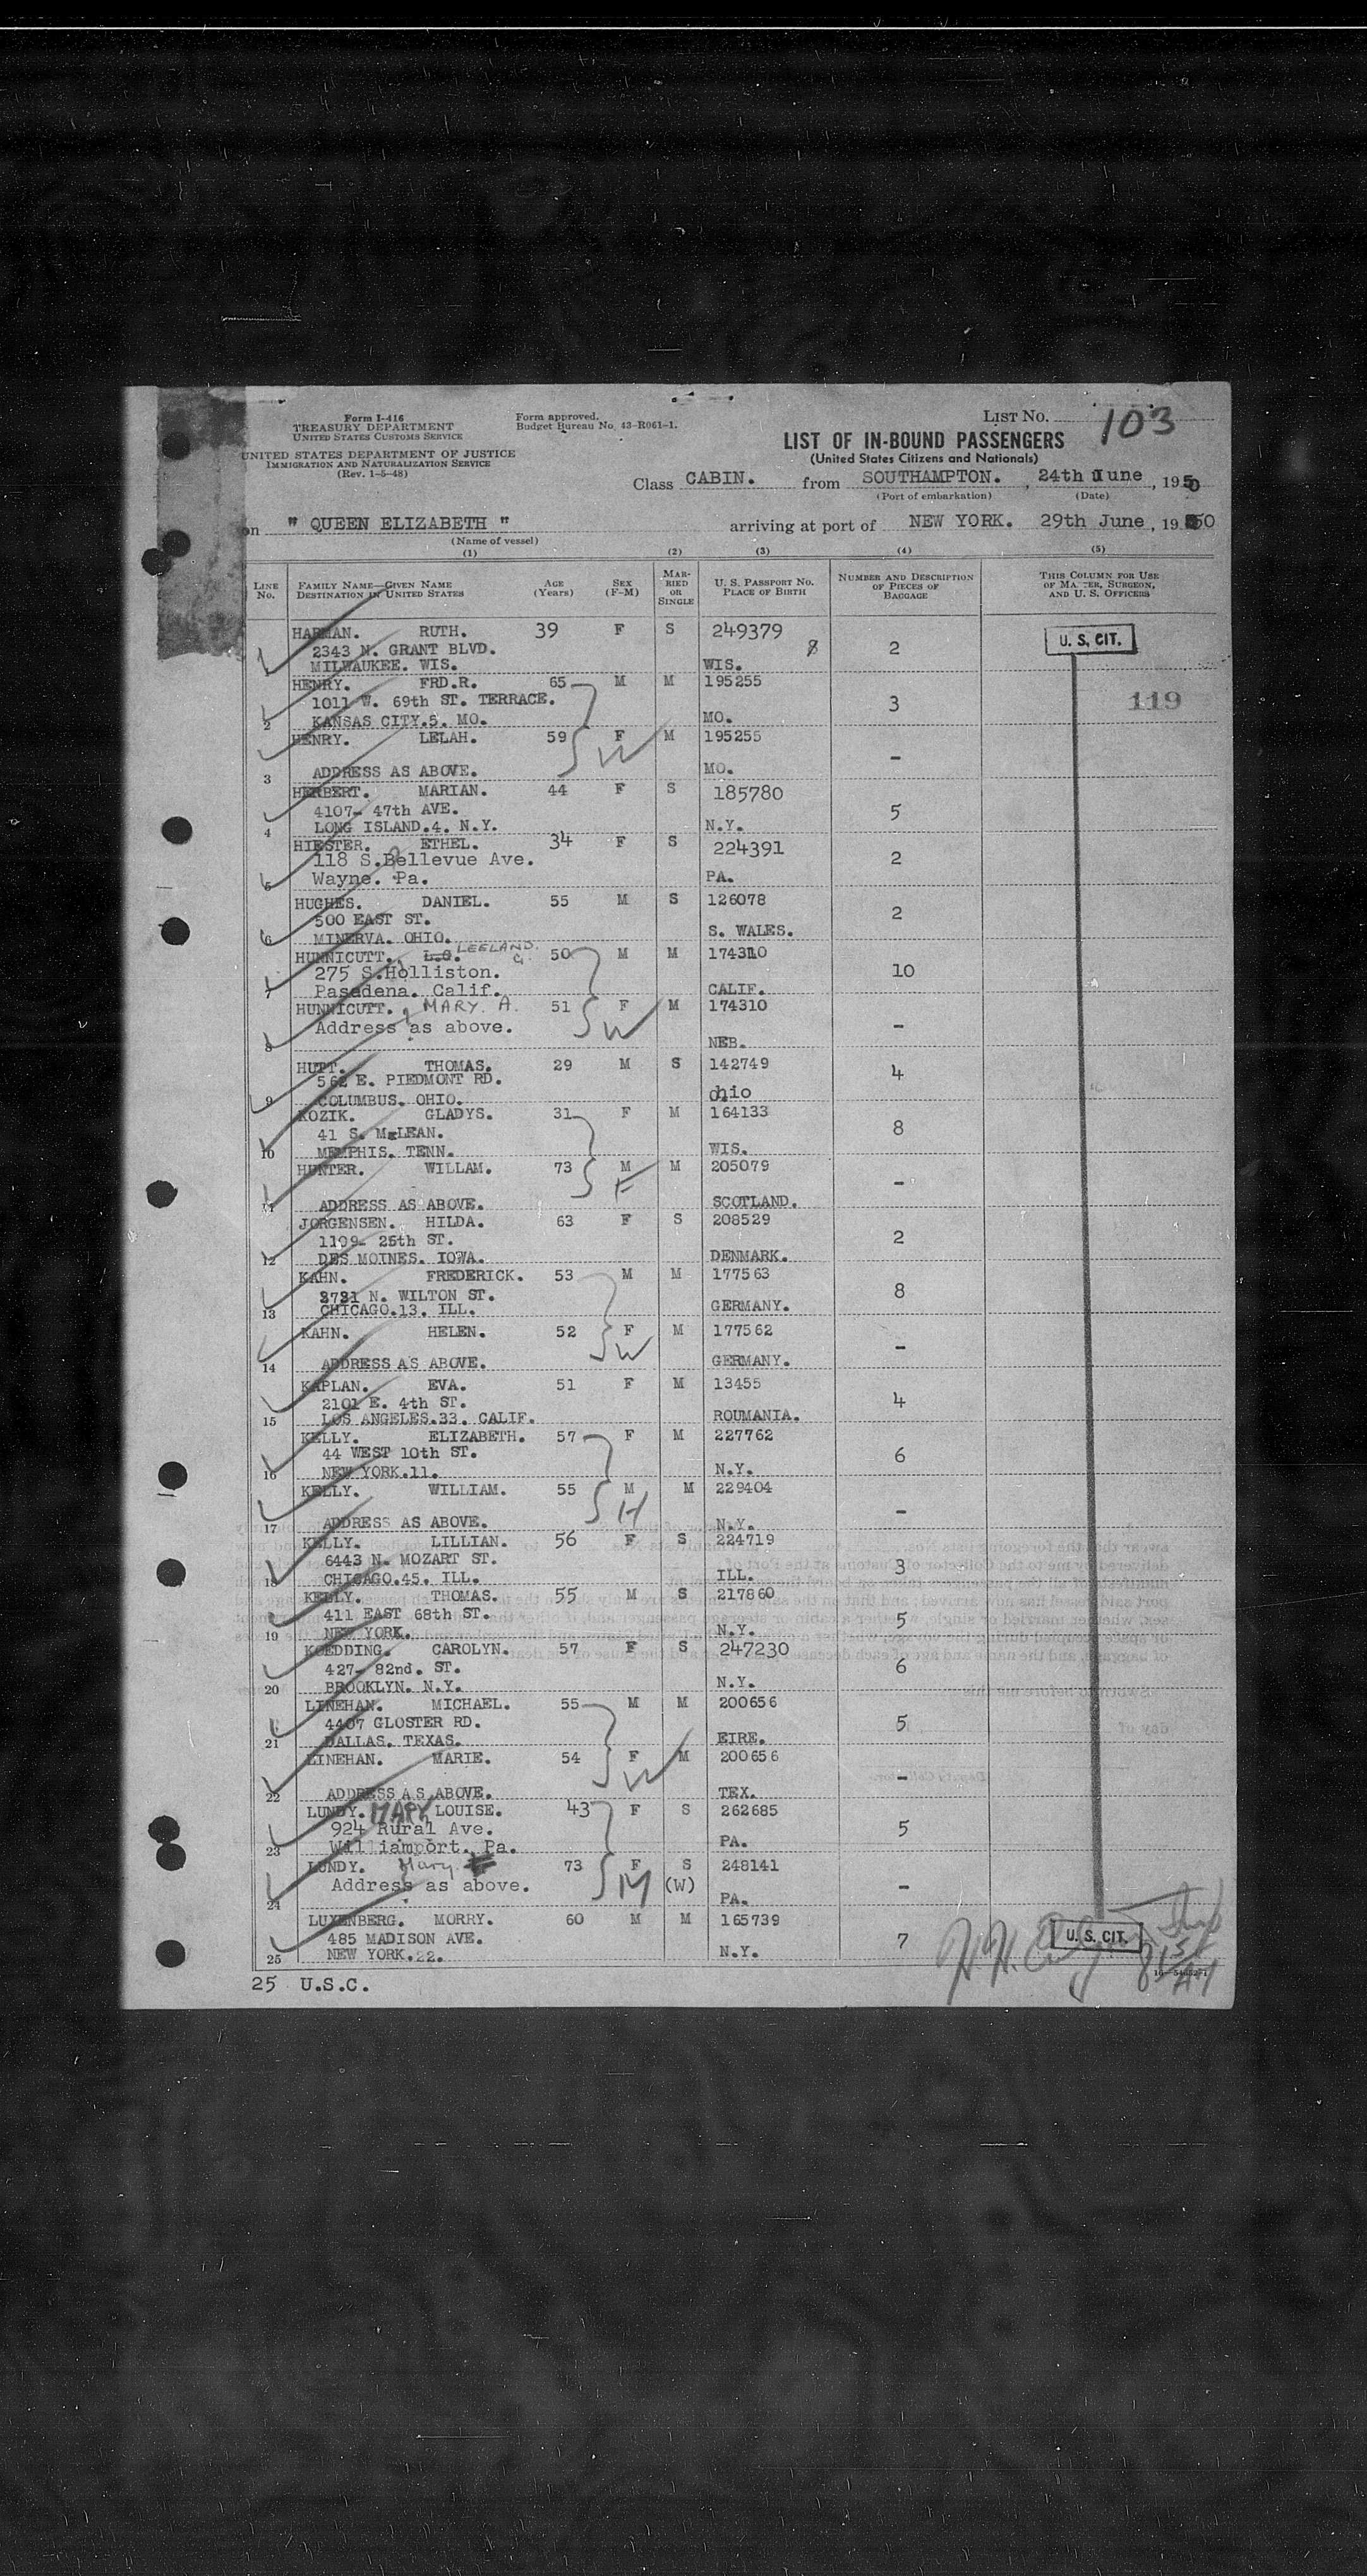 Form I-416
TREASURY DEPARTMENT
UNITED STATES CUSTOMS SERVICE
UNITED STATES DEPARTMENT OF JUSTICE
IMMIGRATION AND NATURALIZATION SERVICE
(Rev. 1-5-48)
Form approved.
Budget Bureau No. 43-R061-1.
LIST NO. 103
LIST OF IN-BOUND PASSENGERS
(United States Citizens and Nationals)
Class CABIN. from SOUTHAMPTON. , 24th June , 1950
(Port of embarkation) (Date)
on " QUEEN ELIZABETH " arriving at port of NEW YORK. 29th June , 1950
(Name of vessel)
(1) (2) (3) (4) (5)
LINE No. FAMILY NAME—GIVEN NAME DESTINATION IN UNITED STATES AGE (Years) SEX (F-M) MARRIED OR SINGLE U. S. PASSPORT NO. PLACE OF BIRTH NUMBER AND DESCRIPTION OF PIECES OF BAGGAGE THIS COLUMN FOR USE OF MASTER, SURGEON, AND U. S. OFFICERS
HARMAN. RUTH. 39 F S 249379 U. S. CIT.
2343 N. GRANT BLVD. 8 2
1 MILWAUKEE. WIS. WIS.
HENRY. FRD.R. 65 M M 195255
1011 W. 69th ST. TERRACE. 3 119
2 KANSAS CITY.5. MO. MO.
HENRY. LELAH. 59 F M 195255
W -
3 ADDRESS AS ABOVE. MO.
HERBERT. MARIAN. 44 F S 185780
4107- 47th AVE. 5
4 LONG ISLAND.4. N.Y. N.Y.
HIESTER. ETHEL. 34 F S 224391
118 S.Bellevue Ave. 2
5 Wayne. Pa. PA.
HUGHES. DANIEL. 55 M S 126078
500 EAST ST. 2
6 MINERVA. OHIO. S. WALES.
HUNNICUTT. L.G. LEELAND. G. 50 M M 174310
275 S.Holliston. 10
7 Pasadena. Calif. CALIF.
HUNNICUTT. MARY. A. 51 F M 174310
Address as above. W -
8 NEB.
HUTT. THOMAS. 29 M S 142749
562 E. PIEDMONT RD. 4
9 COLUMBUS. OHIO. Ohio
KOZIK. GLADYS. 31 F M 164133
41 S. McLEAN. 8
10 MEMPHIS. TENN. WIS.
HUNTER. WILLAM. 73 M M 205079
F -
11 ADDRESS AS ABOVE. SCOTLAND.
JORGENSEN. HILDA. 63 F S 208529
1109- 25th ST. 2
12 DES MOINES. IOWA. DENMARK.
KAHN. FREDERICK. 53 M M 177563
3721 N. WILTON ST. 8
13 CHICAGO.13. ILL. GERMANY.
KAHN. HELEN. 52 F M 177562
W -
14 ADDRESS AS ABOVE. GERMANY.
KAPLAN. EVA. 51 F M 13455
2101 E. 4th ST. 4
15 LOS ANGELES.33. CALIF. ROUMANIA.
KELLY. ELIZABETH. 57 F M 227762
44 WEST 10th ST. 6
16 NEW YORK.11. N.Y.
KELLY. WILLIAM. 55 M M 229404
H -
17 ADDRESS AS ABOVE. N.Y.
KELLY. LILLIAN. 56 F S 224719
6443 N. MOZART ST. 3
18 CHICAGO.45. ILL. ILL.
KELLY. THOMAS. 55 M S 217860
411 EAST 68th ST. 5
19 NEW YORK. N.Y.
KOEDDING. CAROLYN. 57 F S 247230
427- 82nd. ST. 6
20 BROOKLYN. N.Y. N.Y.
LINEHAN. MICHAEL. 55 M M 200656
4407 GLOSTER RD. 5
21 DALLAS. TEXAS. EIRE.
LINEHAN. MARIE. 54 F M 200656
W -
22 ADDRESS AS ABOVE. TEX.
LUNDY. MARY LOUISE. 43 F S 262685
924 Rural Ave. 5
23 Williamport. Pa. PA.
LUNDY. Mary 73 F S 248141
Address as above. M (W) -
24 PA.
LUXENBERG. MORRY. 60 M M 165739
485 MADISON AVE. 7 U. S. CIT.
25 NEW YORK.22. N.Y.
25 U.S.C.